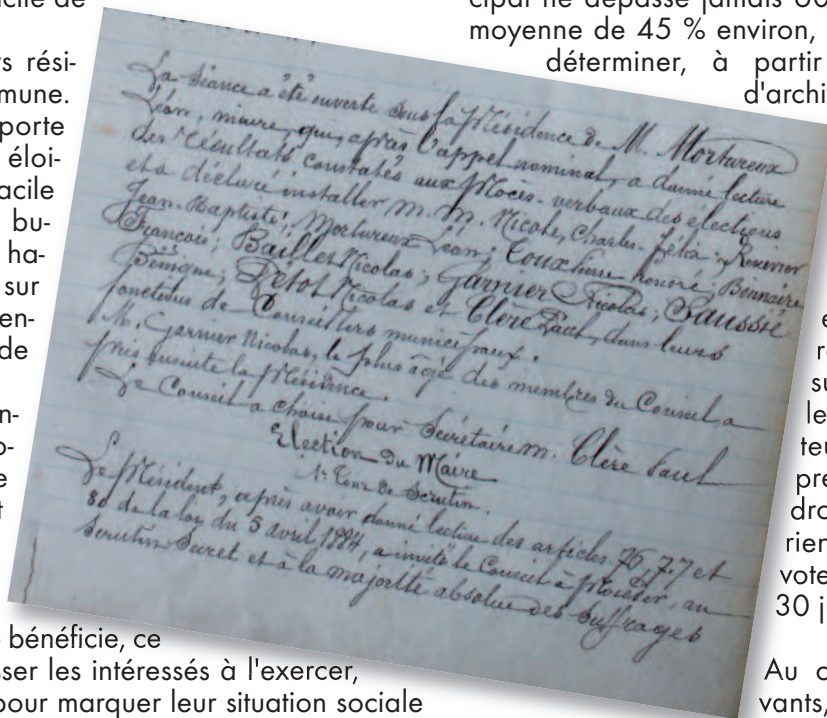 cipal ne dépasse jamais
moyenne de 45 % environ,
déterminer, à partir
d'archi
rs rési-
mune.
porte
éloi-
acile
bu-
ha-
sur
en-
de
La séance a été ouverte sous la Présidence de M. Mortureux
Léon, maire, qui, après l'appel nominal, a donné lecture
des résultats constatés aux Procès-verbaux des élections
et a déclaré installer M.M. Nicole, Charles-Félix;
Jean-Baptiste; Mortureux Léon; Toux Pierre honoré; Bonnaire
François; Bailler Nicolas; Garnier Nicolas; Saussié
Bénigne; Petot Nicolas et Clère Paul, dans leurs
fonctions de Conseillers municipaux.
M. Garnier Nicolas, le plus âgé des membres du Conseil a
pris ensuite la Présidence.
Le Conseil a choisi pour Secrétaire M. Clère Paul
Election du Maire
1er Tour de Scrutin.
Le Président, après avoir donné lecture des articles 76, 77 et
80 de la loi du 5 avril 1884, a invité le Conseil à procéder, au
Scrutin Secret et à la majorité absolue des Suffrages
bénéficie, ce
sser les intéressés à l'exercer,
pour marquer leur situation sociale
le
pre
dro
rien
vote
30 j
Au c
vants,